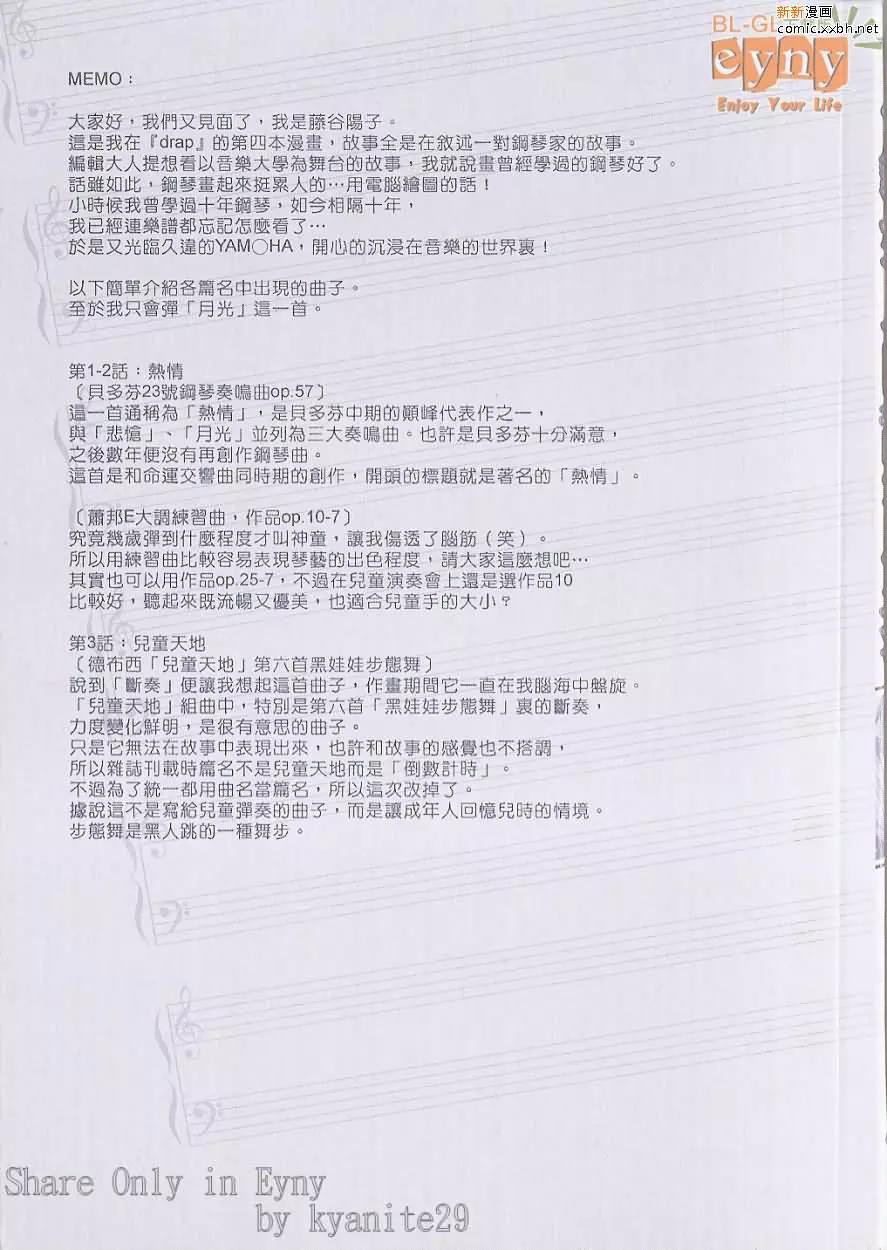 新新漫画
comic.xxbh.net
BL-GL
eyny
Enjoy Your Life
MEMO：
大家好，我們又見面了，我是藤谷陽子。
這是我在『drap』的第四本漫畫，故事全是在敘述一對鋼琴家的故事。
編輯大人提想看以音樂大學為舞台的故事，我就說畫曾經學過的鋼琴好了。
話雖如此，鋼琴畫起來挺累人的…用電腦繪圖的話！
小時候我曾學過十年鋼琴，如今相隔十年，
我已經連樂譜都忘記怎麼看了…
於是又光臨久違的YAM〇HA，開心的沉浸在音樂的世界裏！
以下簡單介紹各篇名中出現的曲子。
至於我只會彈「月光」這一首。
第1-2話：熱情
〔貝多芬23號鋼琴奏鳴曲op.57〕
這一首通稱為「熱情」，是貝多芬中期的巔峰代表作之一，
與「悲愴」、「月光」並列為三大奏鳴曲。也許是貝多芬十分滿意，
之後數年便沒有再創作鋼琴曲。
這首是和命運交響曲同時期的創作，開頭的標題就是著名的「熱情」。
〔蕭邦E大調練習曲，作品op.10-7〕
究竟幾歲彈到什麼程度才叫神童，讓我傷透了腦筋（笑）。
所以用練習曲比較容易表現琴藝的出色程度，請大家這麼想吧…
其實也可以用作品op.25-7，不過在兒童演奏會上還是選作品10
比較好，聽起來既流暢又優美，也適合兒童手的大小？
第3話：兒童天地
〔德布西「兒童天地」第六首黑娃娃步態舞〕
說到「斷奏」便讓我想起這首曲子，作畫期間它一直在我腦海中盤旋。
「兒童天地」組曲中，特別是第六首「黑娃娃步態舞」裏的斷奏，
力度變化鮮明，是很有意思的曲子。
只是它無法在故事中表現出來，也許和故事的感覺也不搭調，
所以雜誌刊載時篇名不是兒童天地而是「倒數計時」。
不過為了統一都用曲名當篇名，所以這次改掉了。
據說這不是寫給兒童彈奏的曲子，而是讓成年人回憶兒時的情境。
步態舞是黑人跳的一種舞步。
Share Only in Eyny
by kyanite29